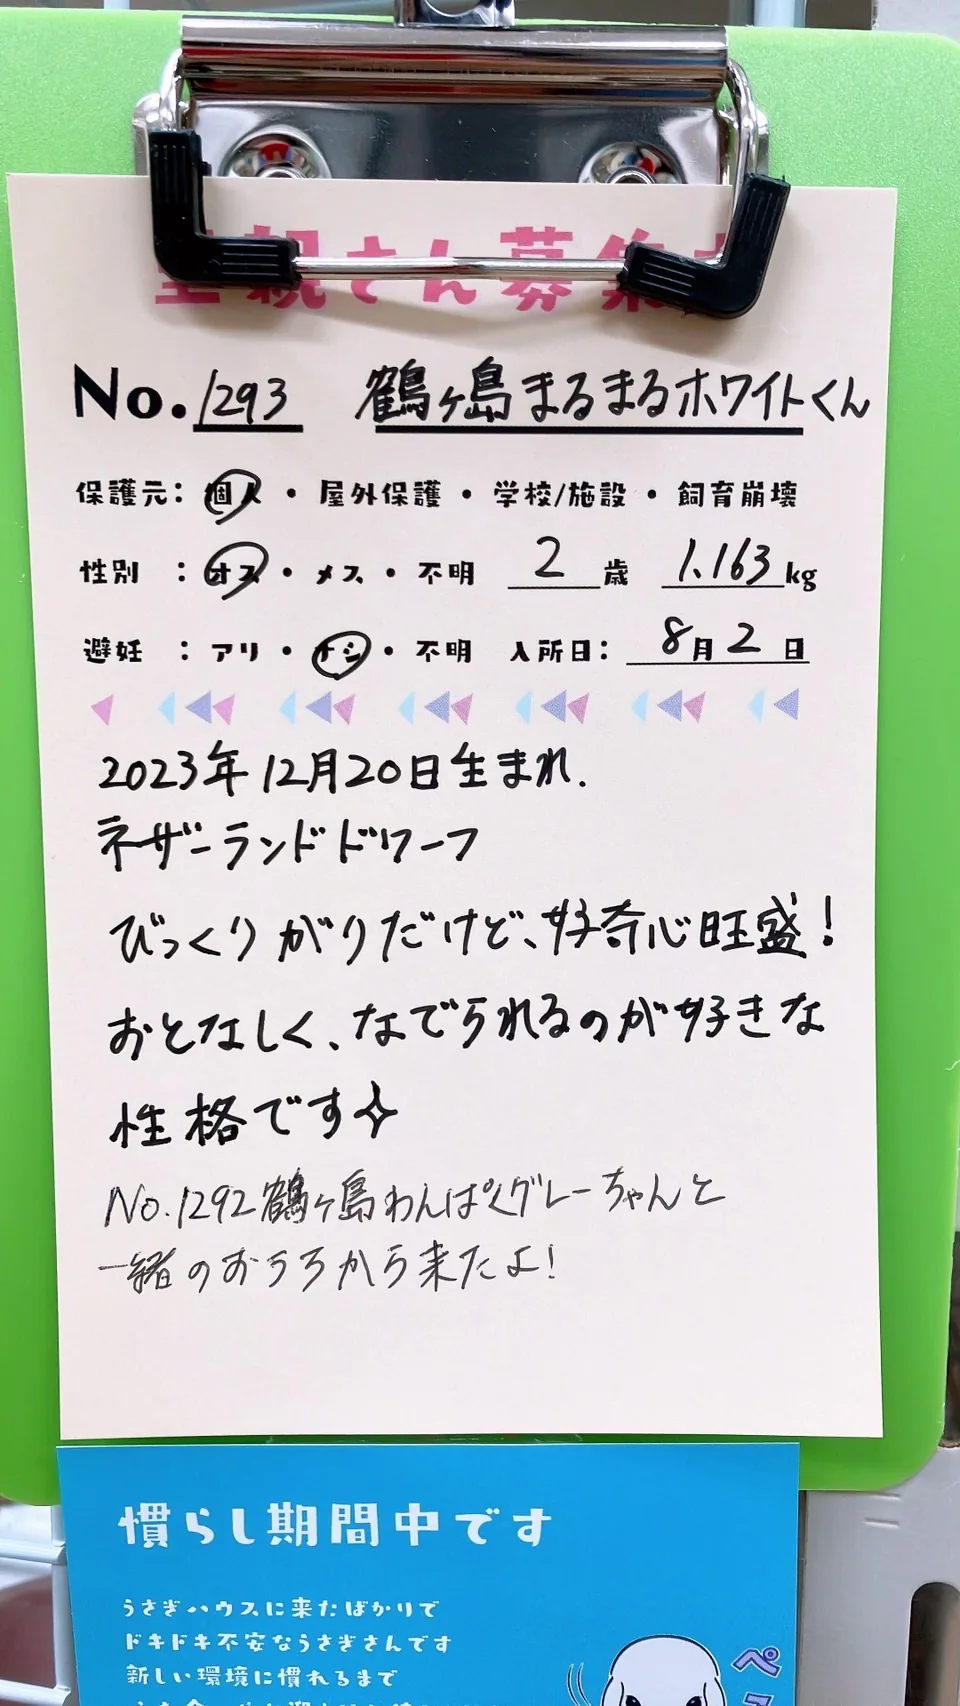 里親さん募集中
No. 1293 鶴ヶ島まるまるホワイトくん
保護元： 個人 ・ 屋外保護 ・ 学校/施設 ・ 飼育崩壊
性別 ： オス ・ メス ・ 不明 2 歳 1.163 kg
避妊 ： アリ ・ ナシ ・ 不明 入所日： 8月2日
2023年12月20日生まれ.
ネザーランドドワーフ
びっくりがりだけど、好奇心旺盛!
おとなしく、なでられるのが好きな
性格です✧
No.1292 鶴ヶ島わんぱくグレーちゃんと
一緒のおうちから来たよ!
慣らし期間中です
うさぎハウスに来たばかりで
ドキドキ不安なうさぎさんです
新しい環境に慣れるまで
ペ